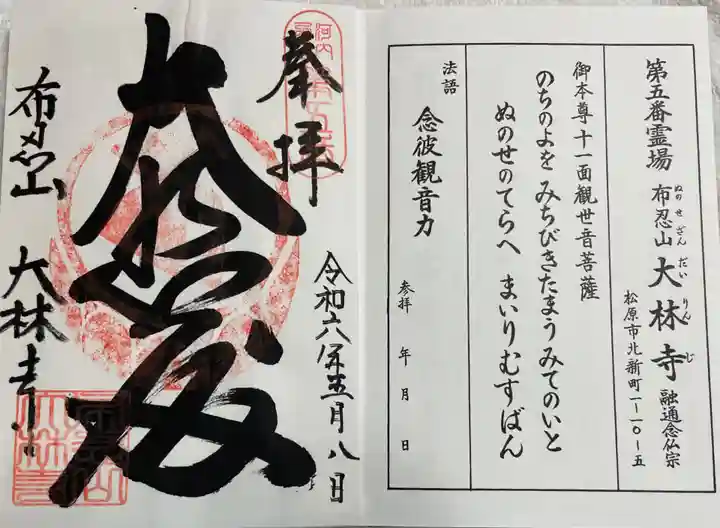 第五番霊場 布忍山 大林寺 融通念仏宗
ぬのせざん だいりんじ
松原市北新町一ー一〇ー五
御本尊十一面観世音菩薩
のちのよを みちびきたまう みてのいと
ぬのせのてらへ まいりむすばん
法語 念彼観音力
参拝 年 月 日
奉拝
令和六年五月八日
大悲殿
布忍山 大林寺